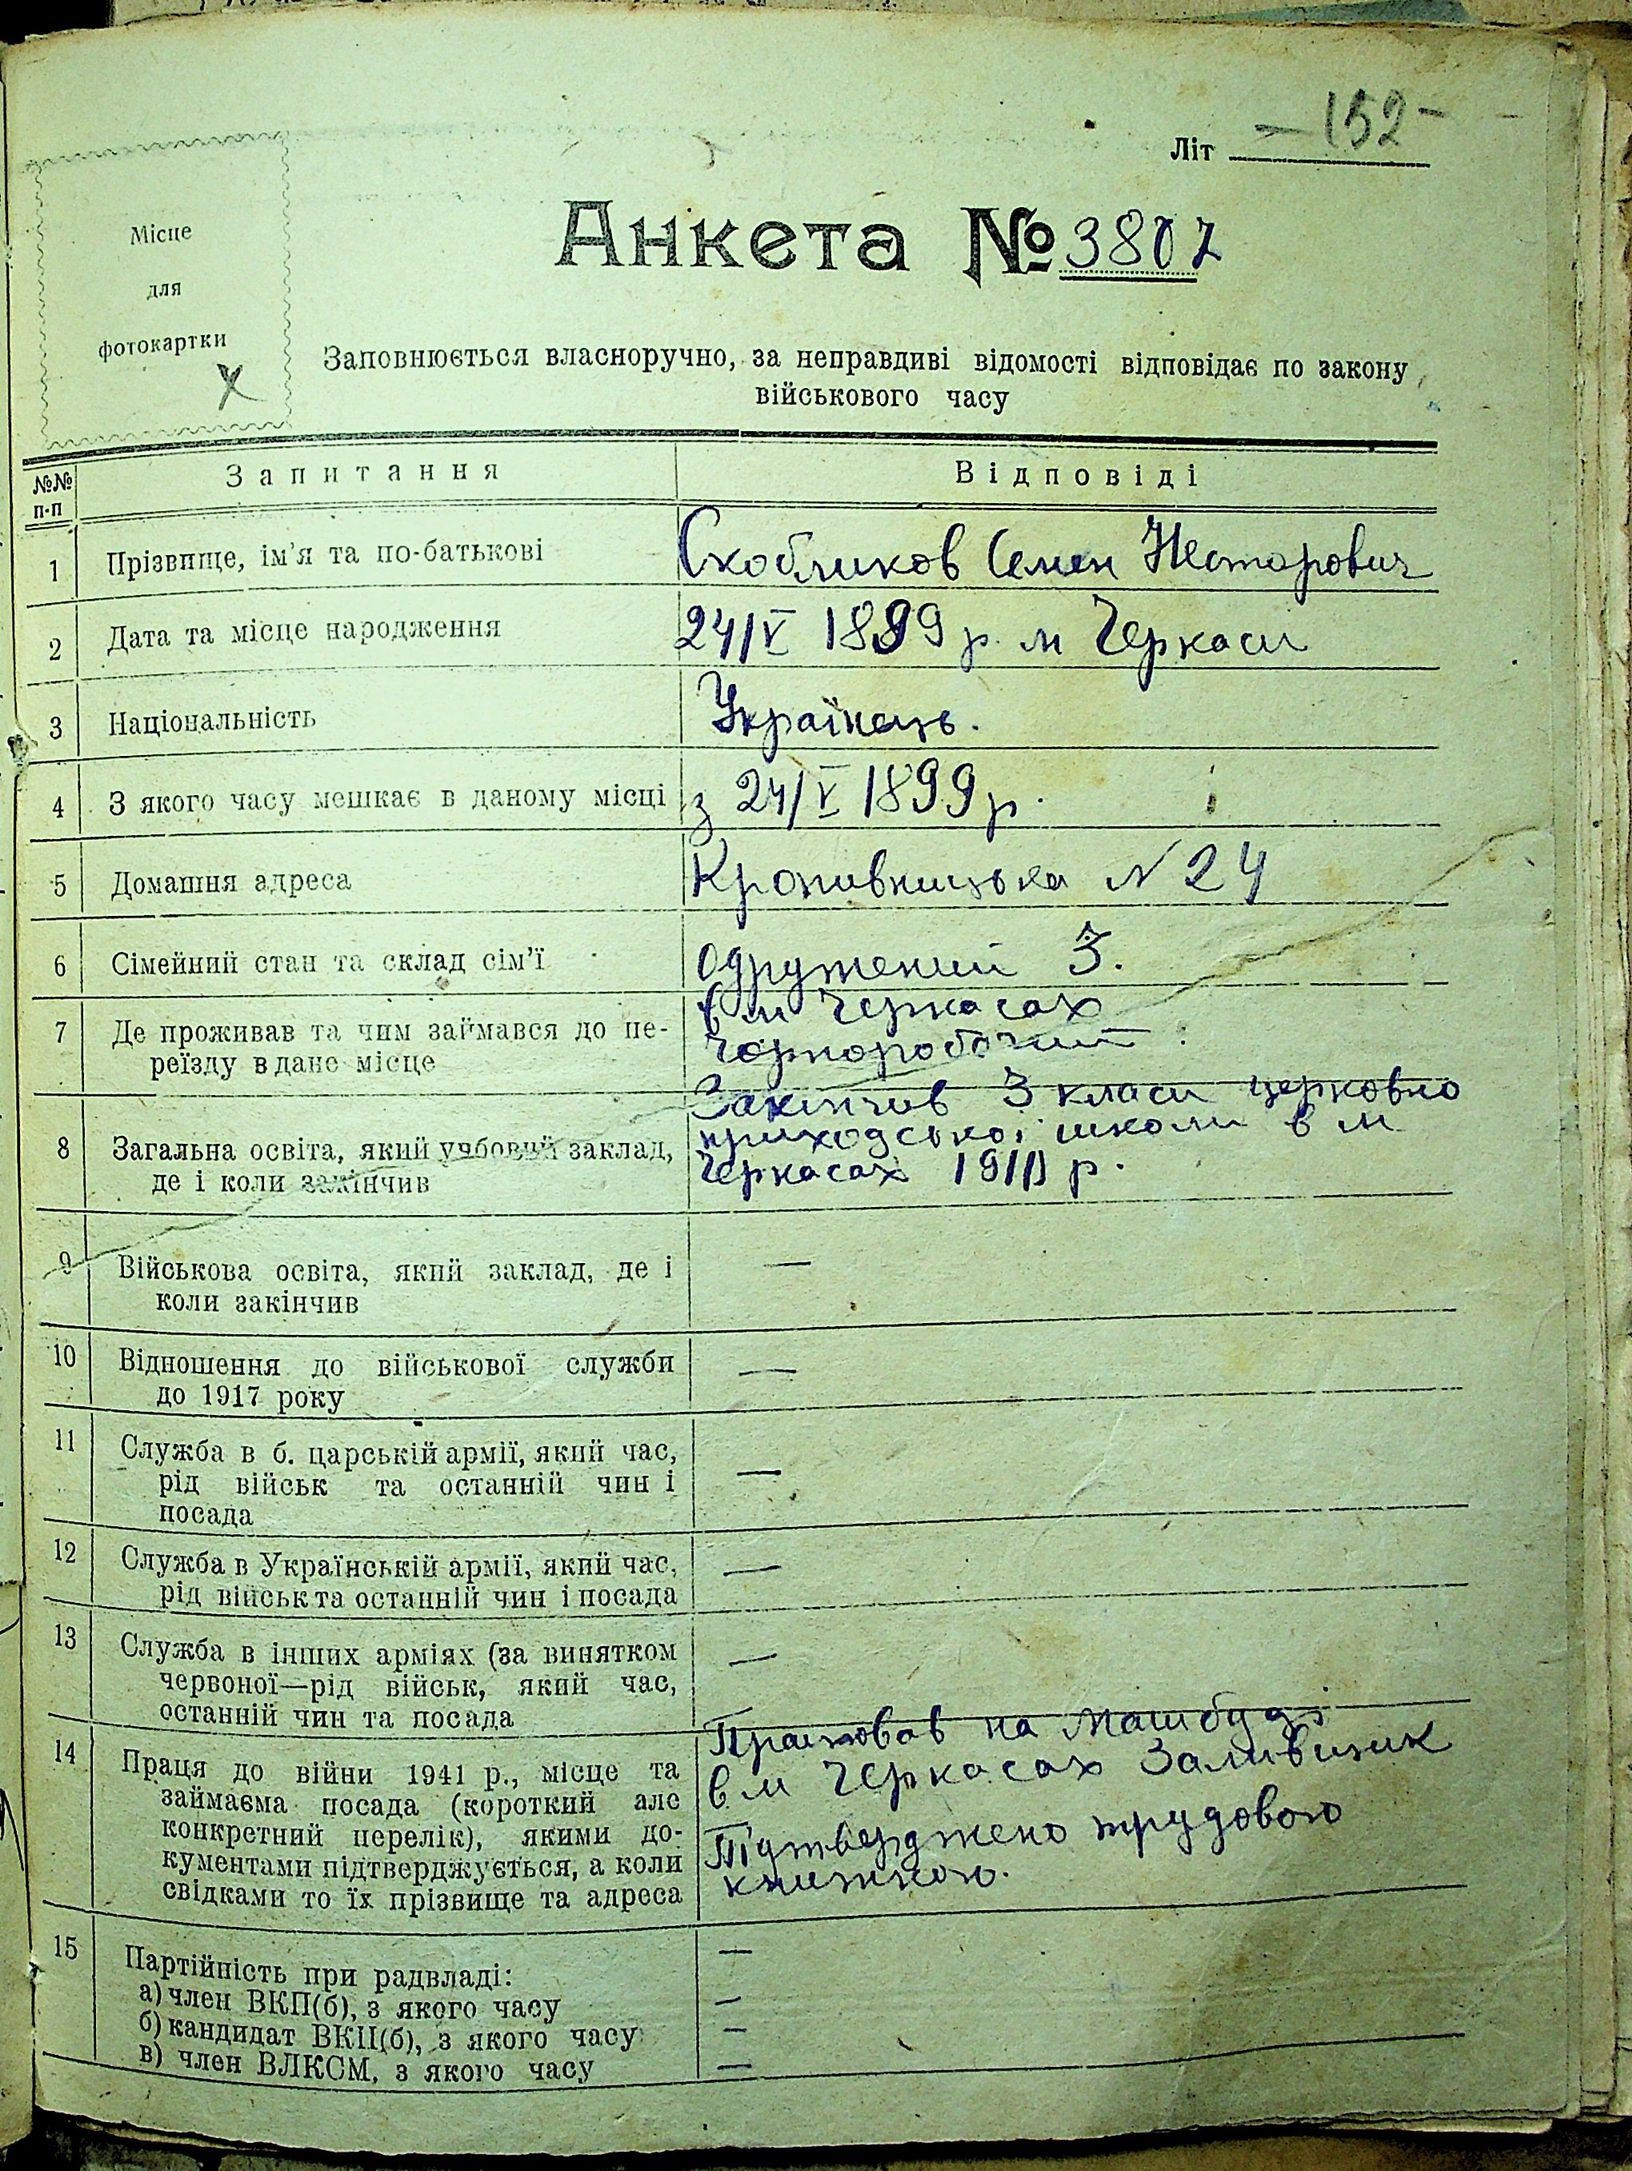 Літ —152—
Місце
для
фотокартки
Анкета № 3807
Заповнюється власноручно, за неправдиві відомості відповідає по закону
військового часу
№№ п-п Запитання Відповіді
1 Прізвище, ім'я та по-батькові Скобликов Семен Нестарович
2 Дата та місце народження 24/V 1899 р. м Черкаси
3 Національність Українець.
4 З якого часу мешкає в даному місці з 24/V 1899 р.
5 Домашня адреса Кропивницька N 24
6 Сімейний стан та склад сім'ї одружений 3.
7 Де проживав та чим займався до пе-
реїзду в дане місце
в м Черкасах
чорноробочий
8 Загальна освіта, який учбовий заклад,
де і коли закінчив
Закінчив 3 класи церковно
приходської школи в м
Черкасах р.
9 Військова освіта, який заклад, де і
коли закінчив —
10 Відношення до військової служби
до 1917 року —
11 Служба в б. царській армії, який час,
рід військ та останній чин і
посада —
12 Служба в Українській армії, який час,
рід військ та останній чин і посада —
13 Служба в інших арміях (за винятком
червоної—рід військ, який час,
останній чин та посада —
14 Праця до війни 1941 р., місце та
займаєма посада (короткий але
конкретний перелік), якими до-
кументами підтверджується, а коли
свідками то їх прізвище та адреса
Працював на Машбуді
в м Черкасах Заливщик
Підтверджено трудовою
книжкою.
15 Партійність при радвладі: —
а) член ВКП(б), з якого часу —
б) кандидат ВКП(б), з якого часу —
в) член ВЛКСМ, з якого часу —